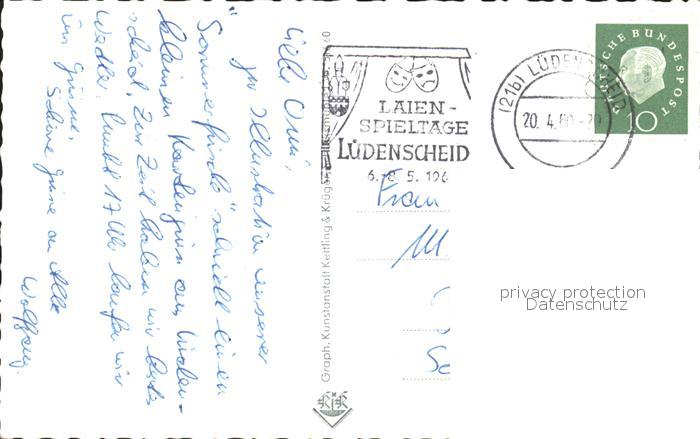 Liebe Omi,
zur Illustration unserer
"Sommerfrische" schickt einen
kleinen Kartengruss aus Lüden-
scheid. Zur Zeit haben wir
Wetter. 17 Uhr laufen wir
im
Schöne Grüsse an Alle
Wolfgang.
Graph. Kunstanstalt Kettling & Krüger
K&K
LAIEN-
SPIELTAGE
LÜDENSCHEID
6.-8. 5. 196
(21b) LÜDENSCHEID
20. 4. 60 - 20
DEUTSCHE BUNDESPOST
10
Frau
M
privacy protection
Datenschutz